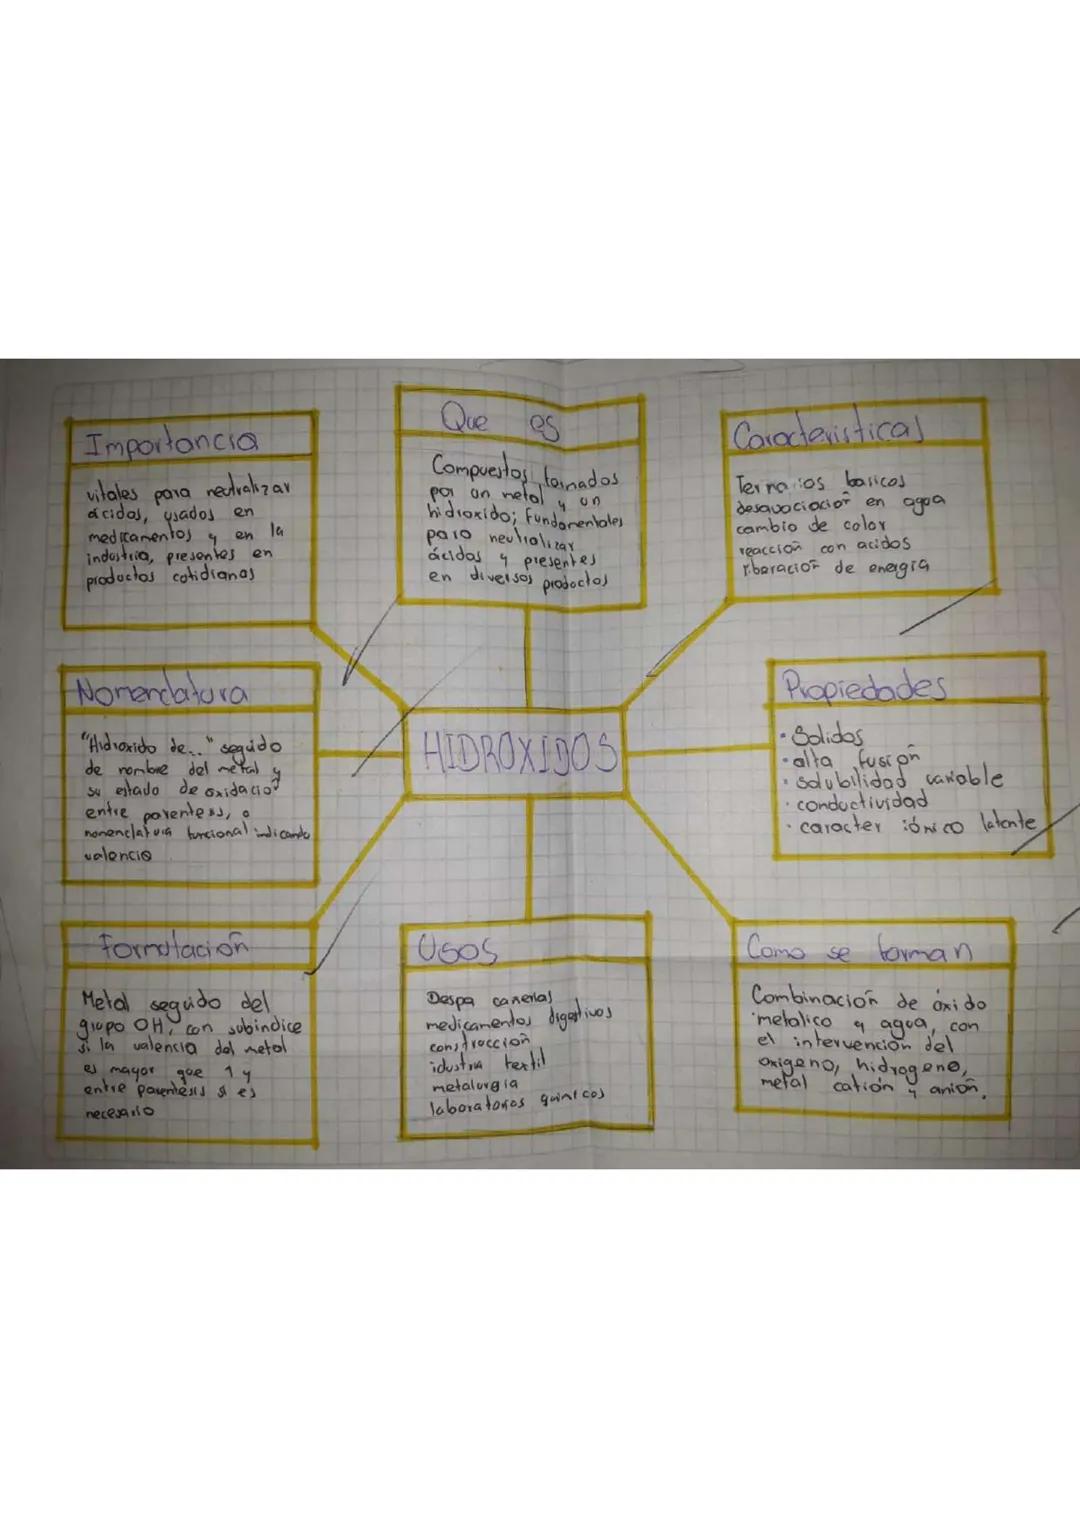 Importancia
vitales para neutralizar
ácidos, usados en
medicamentos y en la
industria, presentes en
productos cotidianos
Que es
Compuestos formados
por un metal y un
hidroxido; Fundamentales
para neutralizar
ácidos y presentes
en diversos productos
Caracteristicas
Ternarios basicos
en agua
cambio de color
reacción con acidos
liberación de energia
Nomenclatura
"Hidroxido de..." seguido
de nombre del metal y
su estado de oxidación
entre parentesis, o
nomenclatura funcional indicando
valencia
HIDROXIDOS
Propiedades
· Solidos
· alta fusión
· solubilidad variable
· conductividad
· caracter iónico latente
Formulación
Metal seguido del
grupo OH, con subindice
si la valencia del metal
es mayor que 1 y
entre parentesis si es
necesario
Usos
Despa canerias
medicamentos digestivos
construcción
idustria textil
metalurgia
laboratorios quimicos
Como se forman
Combinación de óxido
metalico y agua, con
el intervención del
oxigeno, hidrogeno,
metal catión y anión.